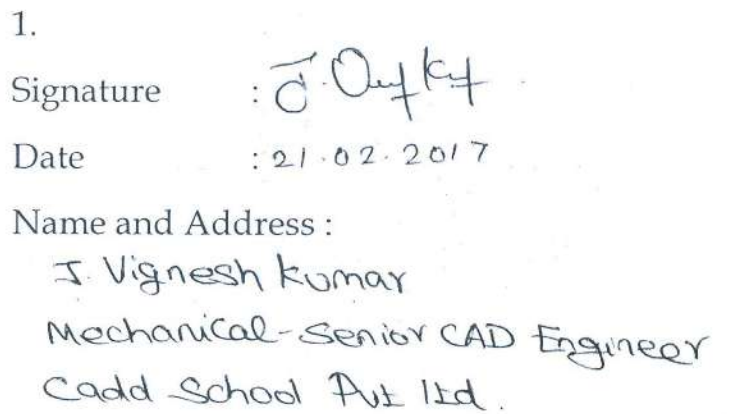 1.
Signature :
Date : 21.02.2017
Name and Address :
J. Vignesh Kumar
Mechanical-Senior CAD Engineer
Cadd School Pvt ltd.